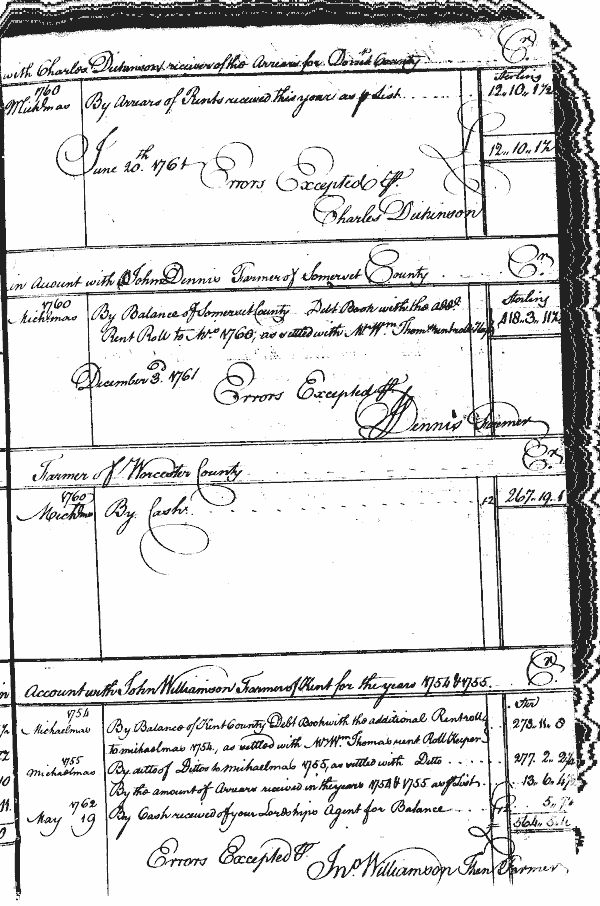 Cr
with Charles Dickinson receiver of the Arriers for Dorsett County
Sterling
1760
Michmas By Arriars of Rents received this year as P List 12,,10,,1½
12,,10,,1½
June 20th 1761 Errors Excepted P.
Charles Dickinson
Cr
in Account with John Dennis Farmer of Somerset County
Sterling
1760
Michmas By Balance of Somerset County Debt Book with the add.l 418,,3,,11½
Rent Roll to 1760, as settled with Mr Wm Thomas rentroll
December 3d 1761 Errors Excepted P
Dennis Farmer
Cr
Farmer of Worcester County
1760
Michmas By Cash 12 267,,19,,1
Cr
Account with John Williamson Farmer of Kent for the years 1754 & 1755
Ster
1754
Michaelmas By Balance of Kent County Debt Book with the additional Rentroll 273,,11,,8
to michaelmas 1754, as settled with Mr Wm Thomas rent Roll Keeper
1755
Michaelmas By ditto of Ditto to michaelmas 1755, as settled with Ditto 277,,2,,
By the amount of Arrears received in the years 1754 & 1755 as P List 13,,6,,4½
1762
May 19 By Cash received of your Lordships Agent for Balance 5,,
564,,5,,
Errors Excepted P.
Jno Williamson Then Farmer